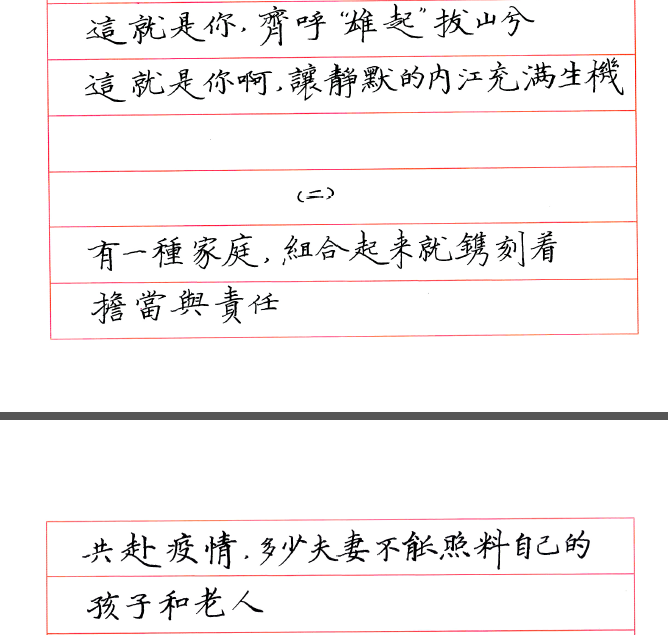 這就是你,齊呼“雄起”拔山兮
這就是你啊,讓靜默的内江充满生機
(二)
有一種家庭,組合起来就鐫刻着
擔當與責任
共赴疫情,多少夫妻不能照料自己的
孩子和老人